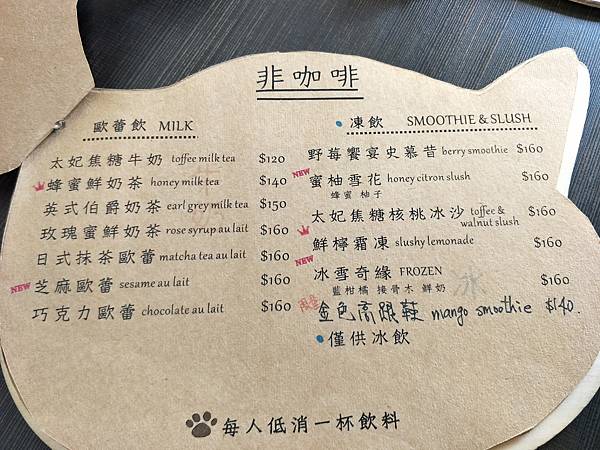 非咖啡
歐蕾飲 MILK
太妃焦糖牛奶 toffee milk tea $120
蜂蜜鮮奶茶 honey milk tea $140
英式伯爵奶茶 earl grey milk tea $150
玫瑰蜜鮮奶茶 rose syrup au lait $160
日式抹茶歐蕾 matcha tea au lait $160
NEW 芝麻歐蕾 sesame au lait $160
巧克力歐蕾 chocolate au lait $160
凍飲 SMOOTHIE & SLUSH
野莓饗宴史慕昔 berry smoothie $160
NEW 蜜柚雪花 honey citron slush $160
蜂蜜 柚子
太妃焦糖核桃冰沙 toffee & walnut slush $160
鮮檸霜凍 slushy lemonade $160
NEW 冰雪奇緣 FROZEN $160
藍柑橘 接骨木 鮮奶
金色高跟鞋 mango smoothie $140.
僅供冰飲
每人低消一杯飲料